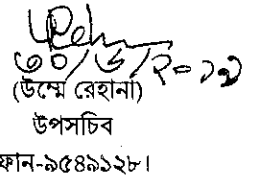 ৩০/৬/২০১৯
(উম্মে রেহানা)
উপসচিব
ফোন-৯৫৪৯১২৮।